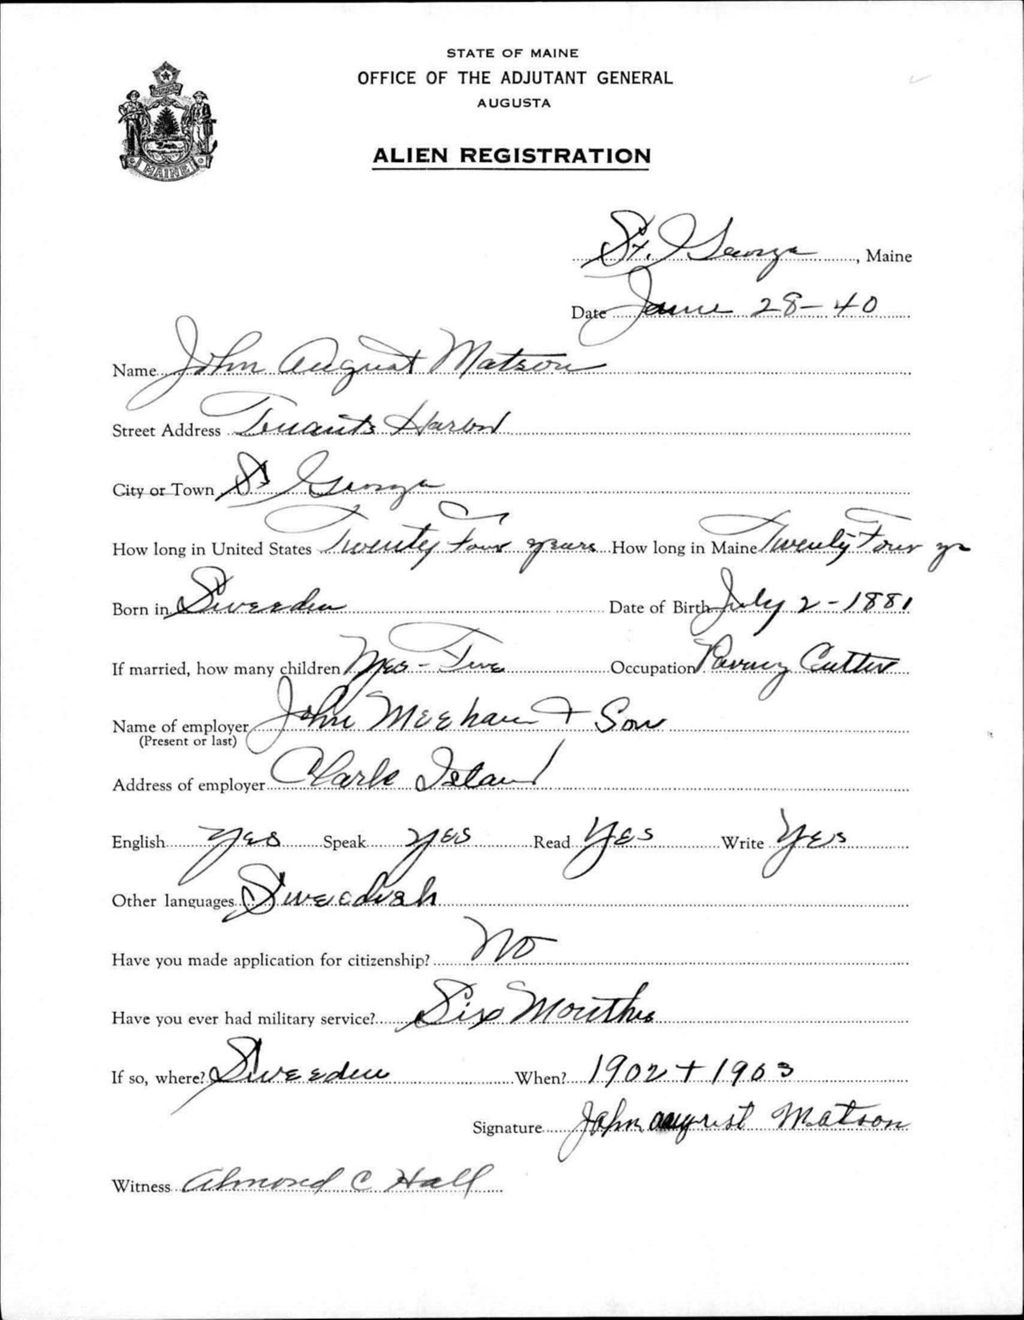 STATE OF MAINE
OFFICE OF THE ADJUTANT GENERAL
AUGUSTA
ALIEN REGISTRATION
MAINE
St. George, Maine
Date June 28-40
Name John August Matson
Street Address Tenants Harbor
City or Town St George
How long in United States Twenty Four years How long in Maine Twenty Four yr
Born in Sweeden Date of Birth July 2-1881
If married, how many children Yes - Five Occupation Paving Cutter
Name of employer John Meehan + Son
(Present or last)
Address of employer Clark Island
English yes Speak yes Read Yes Write Yes
Other languages Sweedish
Have you made application for citizenship? No
Have you ever had military service? Six Months
If so, where? Sweeden When? 1902 + 1903
Signature John august Matson
Witness Almond C Hall